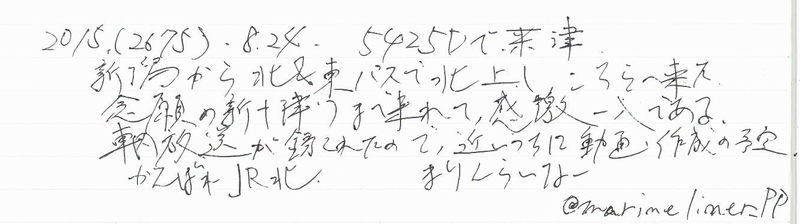 2015.(2675).8.24. 5425Dで来津.
新潟から北&東パスで北上し こちらへ来た
念願の新十津川まで来れて,感激一入である.
車内放送が録れたので,近いうちに動画作成の予定.
がんばれJR北. まりんらいなー
@marimeliner_PP